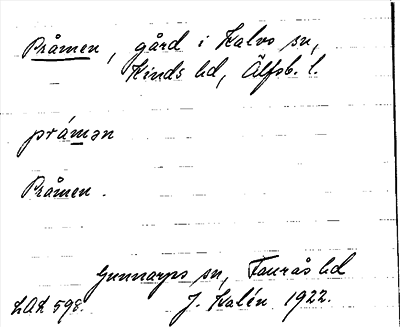 Pråmen, gård i Kalvs sn,
Kinds hd, Älfsb. l.
prá̄mən
Pråmen.
Gunnarps sn, Faurås hd
LAL 598. J. Kalén 1922.